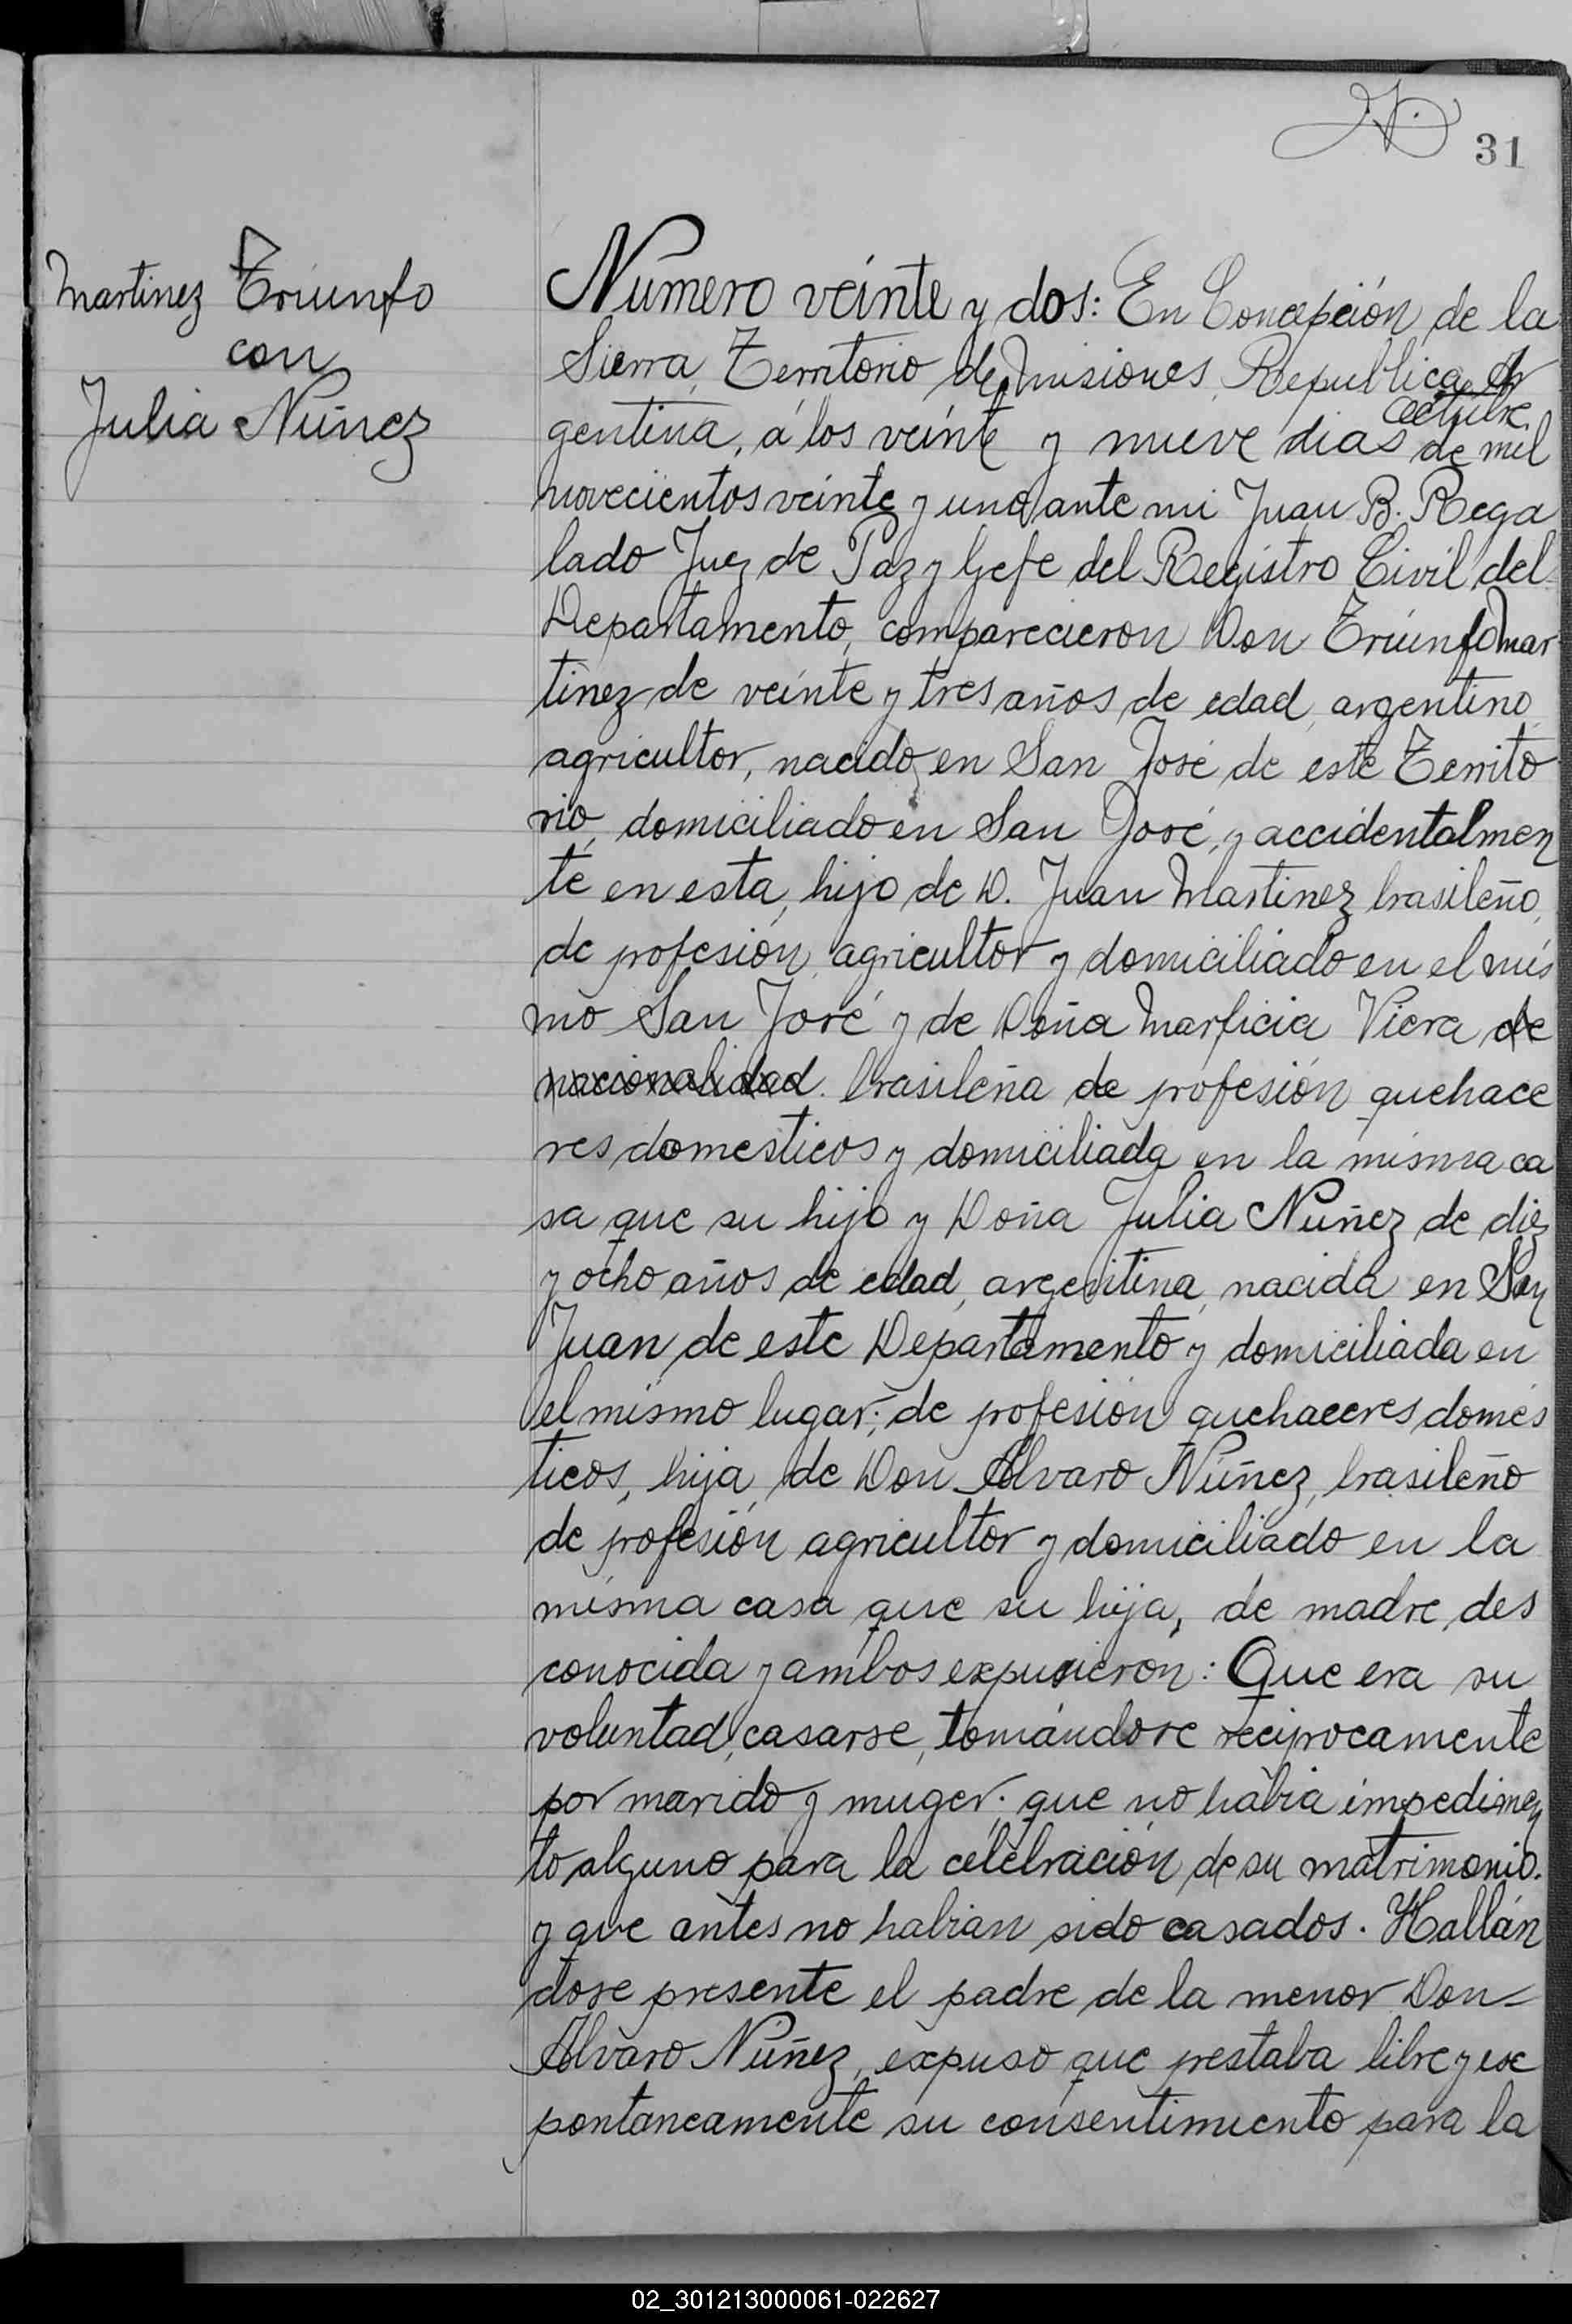 31
Martinez Triunfo
con
Julia Nuñez
Número veinte y dos: En Concepción de la
Sierra, Territorio de Misiones, Republica Ar
gentina, á los veinte y nueve dias de mil
octubre
novecientos veinte y uno, ante mi Juan B. Rega
lado Juez de Paz y Gefe del Registro Civil del
Departamento, comparecieron Don Triunfo Mar
tinez de veinte y tres años de edad, argentino,
agricultor, nacido en San José de este Territo
rio, domiciliado en San José, y accidentalmen
te en esta, hijo de D. Juan Martinez brasileño,
de profesión agricultor y domiciliado en el mis
mo San José y de Doña Marficia Viera de
nacionalidad. brasileña de profesión quehace
res domesticos y domiciliada en la misma ca
sa que su hijo y Doña Julia Nuñez de diez
y ocho años de edad, argentina, nacida en San
Juan de este Departamento y domiciliada en
el mismo lugar; de profesión quehaceres domés
ticos, hija de Don Alvaro Núñez, brasileño
de profesión agricultor y domiciliado en la
misma casa que su hija, de madre des
conocida y ambos expusieron: Que era su
voluntad casarse, tomándose reciprocamente
por marido y muger. que no habia impedimen
to alguno para la celebración de su matrimonio.
y que antes no habian sido casados. Hallán
dose presente el padre de la menor Don
Alvaro Núñez, expuso que prestaba libre y ex
pontaneamente su consentimiento para la
02_301213000061-022627